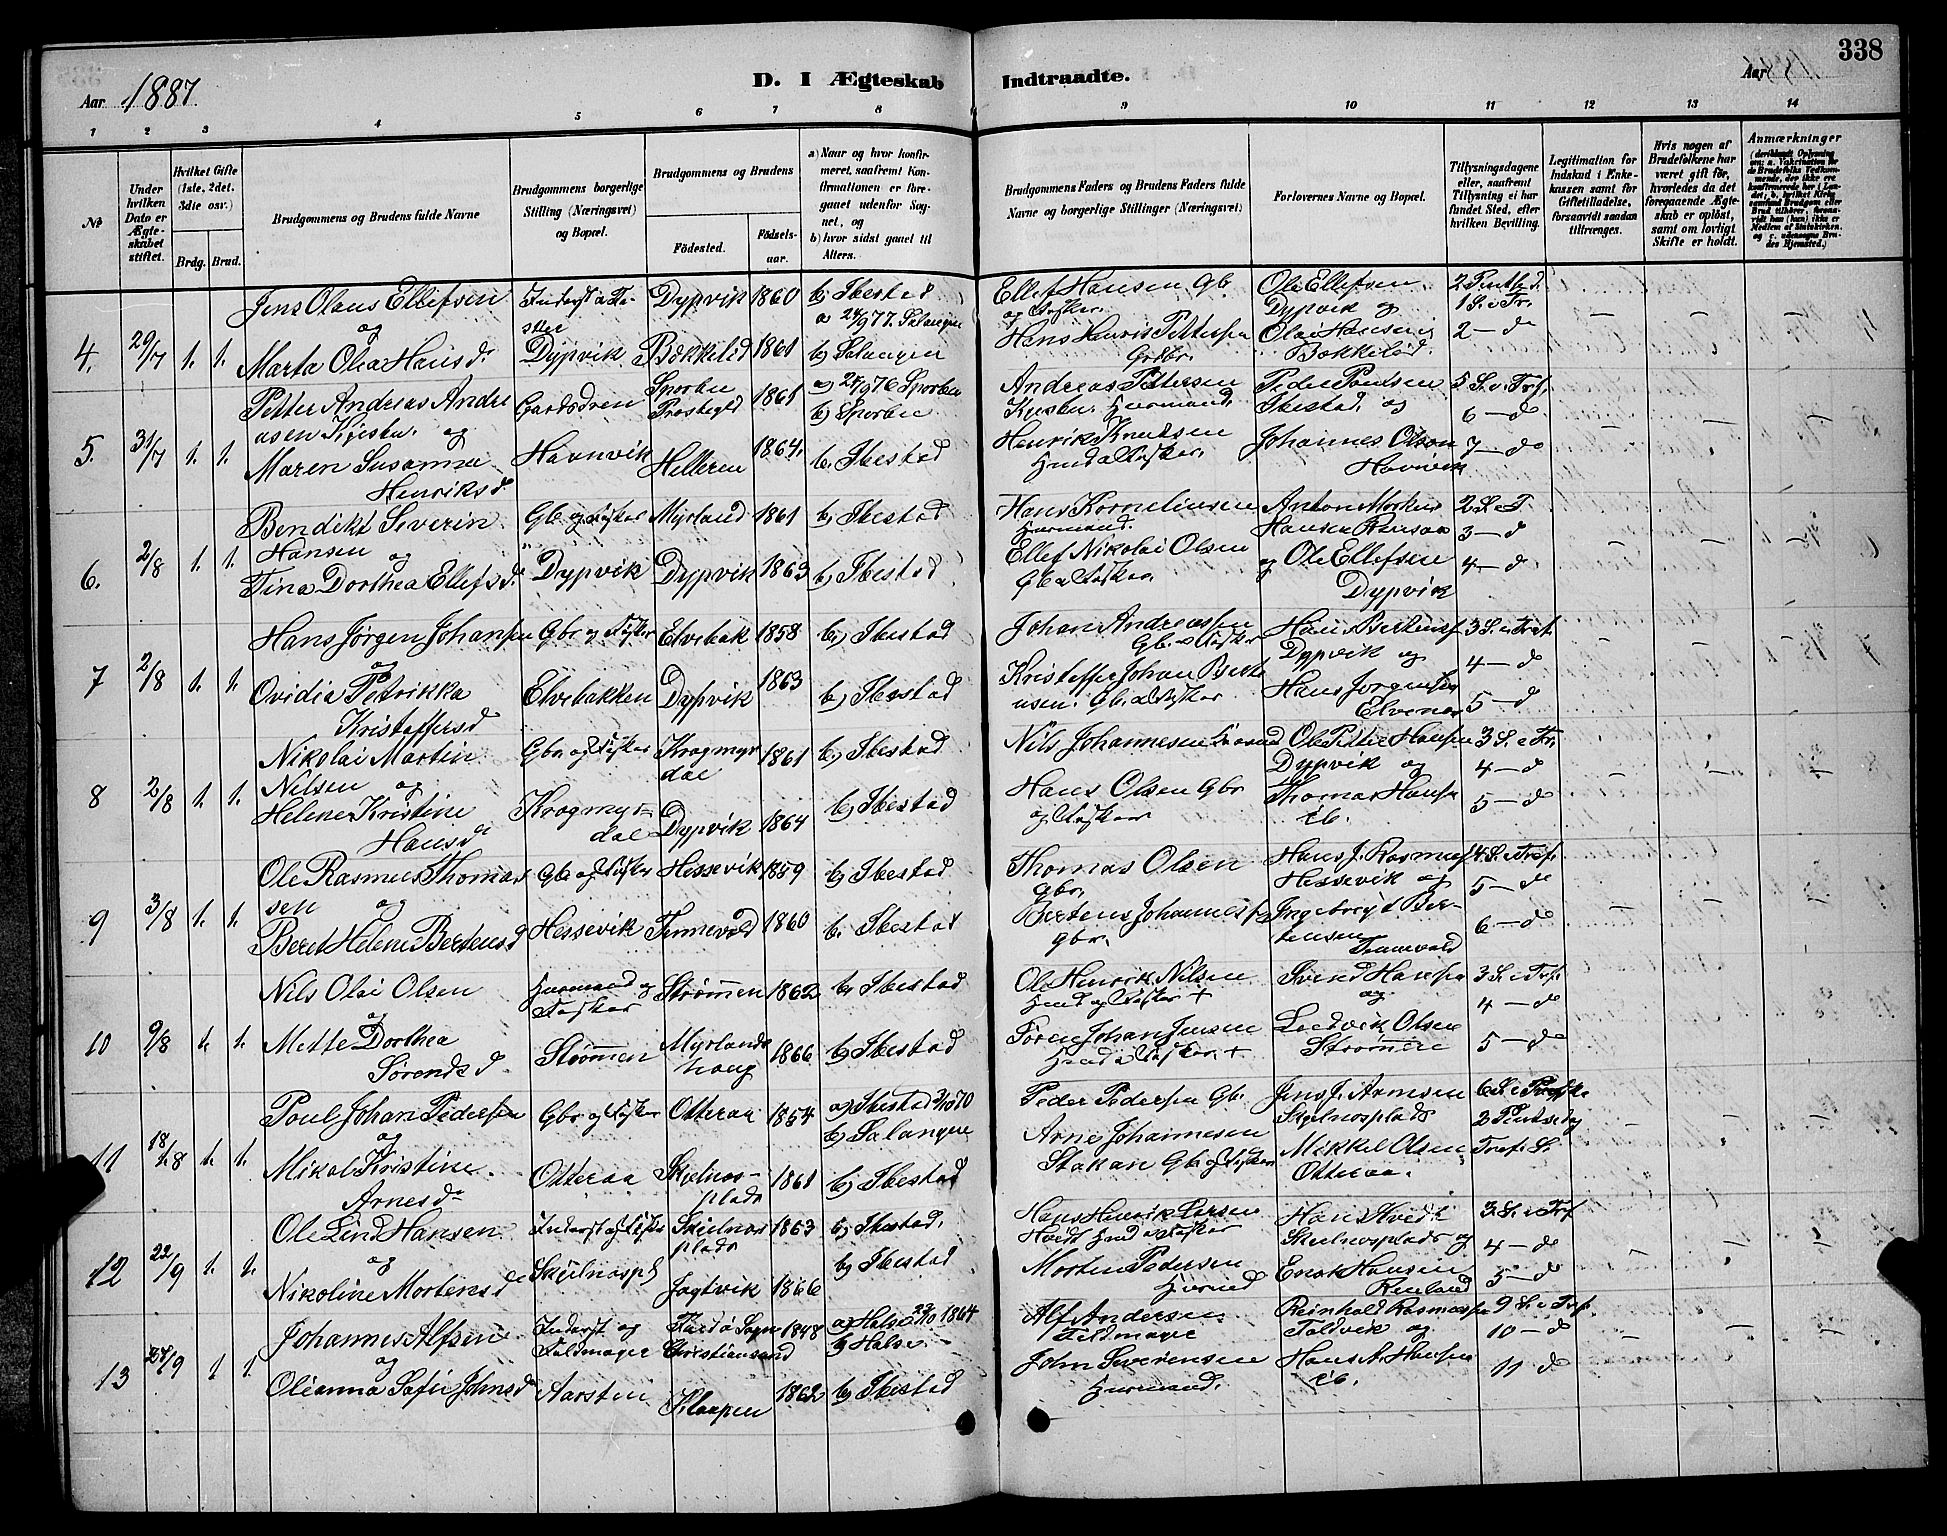 338
Aar 1887.
D. I Ægteskab Indtraadte.
Aar
1 2 3 4 5 6 7 8 9 10 11 12 13 14
№
Under hvilken Dato er Ægteskabet stiftet.
Hvilket Gifte (1ste, 2det. 3die osv.)
Brdg. Brud.
Brudgommens og Brudens fulde Navne
Brudgommens borgerlige Stilling (Næringsvei) og Bopæl.
Brudgommens og Brudens
Fødested.
Fødselsaar.
a) Naar og hvor konfirmeret, saafremt Konfirmationen er foregaaet udenfor Sognet, og
b) hvor sidst gaaet til Alters.
Brudgommens Faders og Brudens Faders fulde Navne og borgerlige Stillinger (Næringsvei)
Forlovernes Navne og Bopæl.
Tillysningsdagene eller, saafremt Tillysning ei har fundet Sted, efter hvilken Bevilling.
Legitimation for Indskud i Enkekassen samt for Giftetilladelse, forsaavidt saadan tiltrænges.
Hvis nogen af Brudefolkene har været gift før, hvorledes da det foregaaende Ægteskab er opløst, samt om lovligt Skifte er holdt.
Anmærkninger
4. 29/7 1. 1.
Jens Olaus Ellefsen
og
Marta Olea Hansd.
Dypvik
Dypvik 1860
Bækkelid 1861
b) Ibestad
a 24/9 77. Salangen
b) Salangen
Ellef Hansen Gb.
og Fisker.
Hans Henrik Pettersen
Grdbr.
Ole Ellefsen
Dypvik og
Olai Hansen
Bækkelid.
1 S. e Tr.
2 — d
5. 31/7 1. 1.
Petter Andreas Andre
asen Kjesbu. og
Maren Susanna
Henriksd.
Gaardsdren
Havnvik
Snorben
Præstegld 1861
Helleren 1864.
a) 24/9 76 Sporben
b) Sporben
b. Ibestad
Andreas Pettersen
Kjesbu. Huusmand.
Henrik Knudsen
Hmd & Fisker.
Peder Poulsen
Ibestad. og
Johannes Olsen
Havnvik
5 S. e Tref.
6 — d
7 — do
6. 2/8 1. 1.
Bendikt Severin
Hansen og
Tina Dorthea Ellefsd.
Gb og Fisker
Dypvik
Myrland 1861
Dypvik 1863
b) Ibestad
b) Ibestad
Hans Korneliusen
Huusmand.
Ellef Nikolai Olsen
Gb & Fisker.
Anton Markus
Hansen Rensaa
og Ole Ellefsen
Dypvik
2 S. e T.
3 — d
4 — d
7 2/8 1. 1.
Hans Jørgen Johansen
og
Ovidia Petrikka
Kristoffersd
Gbr og Fisker
Elvebakken
Elvebak 1858
Dypvik 1863
b) Ibestad
b) Ibestad
Johan Andreassen
Gb. & Fisker
Kristoffer Johan Bert
usen. Gb. & Fisker
Hans Bertensf
Dypvik og
Hans Jørgensen
Elvenes
3 S. e Tref.
4 — d
5 — d
8 2/8 1. 1.
Nikolai Martin
Nilsen og
Helene Kristine
Hansd
Gbr og Fisker
Krogmyr=
dal
Krogmyr
dal 1861
Dypvik 1864
b) Ibestad
b) Ibestad
Nils Johannesen Huusmd
Hans Olsen Gbr
og Fisker
Ole Petter Hansen
Dypvik og
Thomas Hansen
ib.
3 S. e Tr.
4 — d
5 — d
9 3/8 1. 1.
Ole Rasmus Thomas
sen og
Beret Helene Bertensd
Gbr og Fisker
Hessevik
Hessevik 1859
Tennevold 1860
b) Ibestad
b. Ibestad
Thomas Olsen
Gbr.
Bertens Johannesen
Gbr.
Hans J. Rasmusf
Hessevik og
Ingebregt Ber-
tensen
4 S. e Tref.
5 — d
6 — d
10 9/8 1. 1.
Nils Olai Olsen
og
Mette Dorthea
Sørensd.
Huusmand og
Fisker
Strømmen
Strømmen 1862
Myrlands
houg 1866
b. Ibestad
b) Ibestad
Ole Henrik Nilsen
Hmd og Fisker +
Søren Johan Jensen
Hmd & Fisker +
Svend Hansen
og
Lodvik Olsen
Strømmen
3 S. e Tref.
4 — d
5 — d
11 18/8 1. 1.
Poul Johan Pedersen
og
Mikal Kristine
Arnesd.
Gbr og Fisker
Otteraa
Otteraa 1854
Skjelnes-
plads 1861
a) Ibestad 2/10 70
b) Salangen
b) Ibestad
Peder Pedersen Gb.
Arne Johannesen
Stakan Gb. og Fisker
Jens J. Arnesen
Skjelnesplads
Mikkel Olsen
Otteraa.
12 22/9 1. 1.
Ole Lind Hansen
og
Nikoline Mortensd
Inderst og Fisker
Skjelnespl
Skjelnes
plads 1863
Jagtvik 1866
b) Ibestad.
b) Ibestad
Hans Henrik Larsen
Hvidt Hmd & Fisker
Morten Pedersen
Huusmd
Hans Hvidt
Skjelnesplads og
Enok Hansen
Renland
3 S. e Tref
4 — d
5 — d
13 27/9 1 1.
Johannes Alfsen
og
Oleanna Sofie Johnsd
Inderst og
Feldmager
Aarsten
Christiansand 1848
Klaapen 1862
a) Halse 23/10 1864
b) Halse.
b) Ibestad
Alf Andersen
Feldmager
John Severensen
Huusmand.
Reinhold Rasmussen
Foldvik og
Hans A. Hansen
ib.
9 S. e Tref.
10 — d
11 d